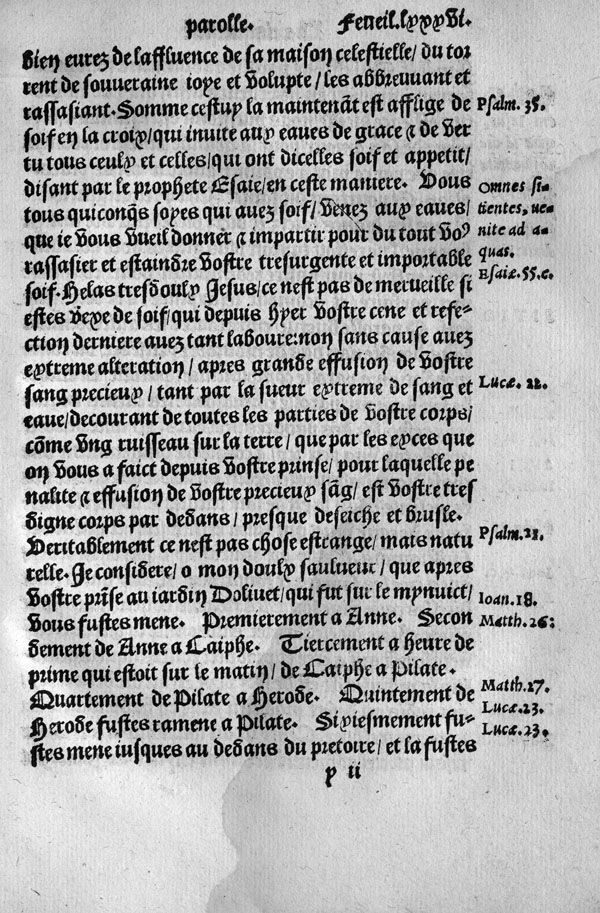 parolle. Feueil.lxxxvi.
bien eurez de laffluence de sa maison celestielle/ du tor
rent de souveraine ioye et volupte/ les abbreuvant et
rassasiant. Somme cestuy la maintenāt est afflige de
soif en la croix/ qui invite aux eaues de grace ⁊ de ver
tu tous ceulx et celles/ qui ont dicelles soif et appetit/
disant par le prophete Esaie/ en ceste maniere. Vous
tous quiconqs soyes qui avez soif/ venez aux eaues/
que ie vous vueil donner ⁊ impartir pour du tout voꝰ
rassasier et estaindre vostre tresurgente et importable
soif. Helas tresdoulx Jesus/ ce nest pas de merveille si
estes vexe de soif/ qui depuis hyer vostre cene et refe-
ction derniere avez tant laboure: non sans cause avez
extreme alteration/ apres grande effusion de vostre
sang precieux/ tant par la sueur extreme de sang et
eaue/ decourant de toutes les parties de vostre corps/
cōme vng ruisseau sur la terre/ que par les exces que
on vous a faict depuis vostre prinse/ pour laquelle pe
nalite ⁊ effusion de vostre precieux sāg/ est vostre tres
digne corps par dedans/ presque deseiche et brusle.
Veritablement ce nest pas chose estrange/ mais natu
relle. Je considere/ o mon doulx saulueur/ que apres
vostre prīse au iardin Dolivet/ qui fut sur le mynuict/
vous fustes mene. Premierement a Anne. Secon
dement de Anne a Caiphe. Tiercement a heure de
prime qui estoit sur le matin/ de Caiphe a Pilate.
Quartement de Pilate a Herode. Quintement de
Herode fustes ramene a Pilate. Sixiesmement fu-
stes mene iusques au dedans du pretoire/ et la fustes
x ii
Psalm. 35.
Omnes si-
tientes, ue-
nite ad a-
quas.
Esaiæ. 55. c.
Lucæ. 22.
Psalm. 21.
Ioan. 18.
Matth. 26:
Matth. 27.
Lucæ. 23.
Lucæ. 23.